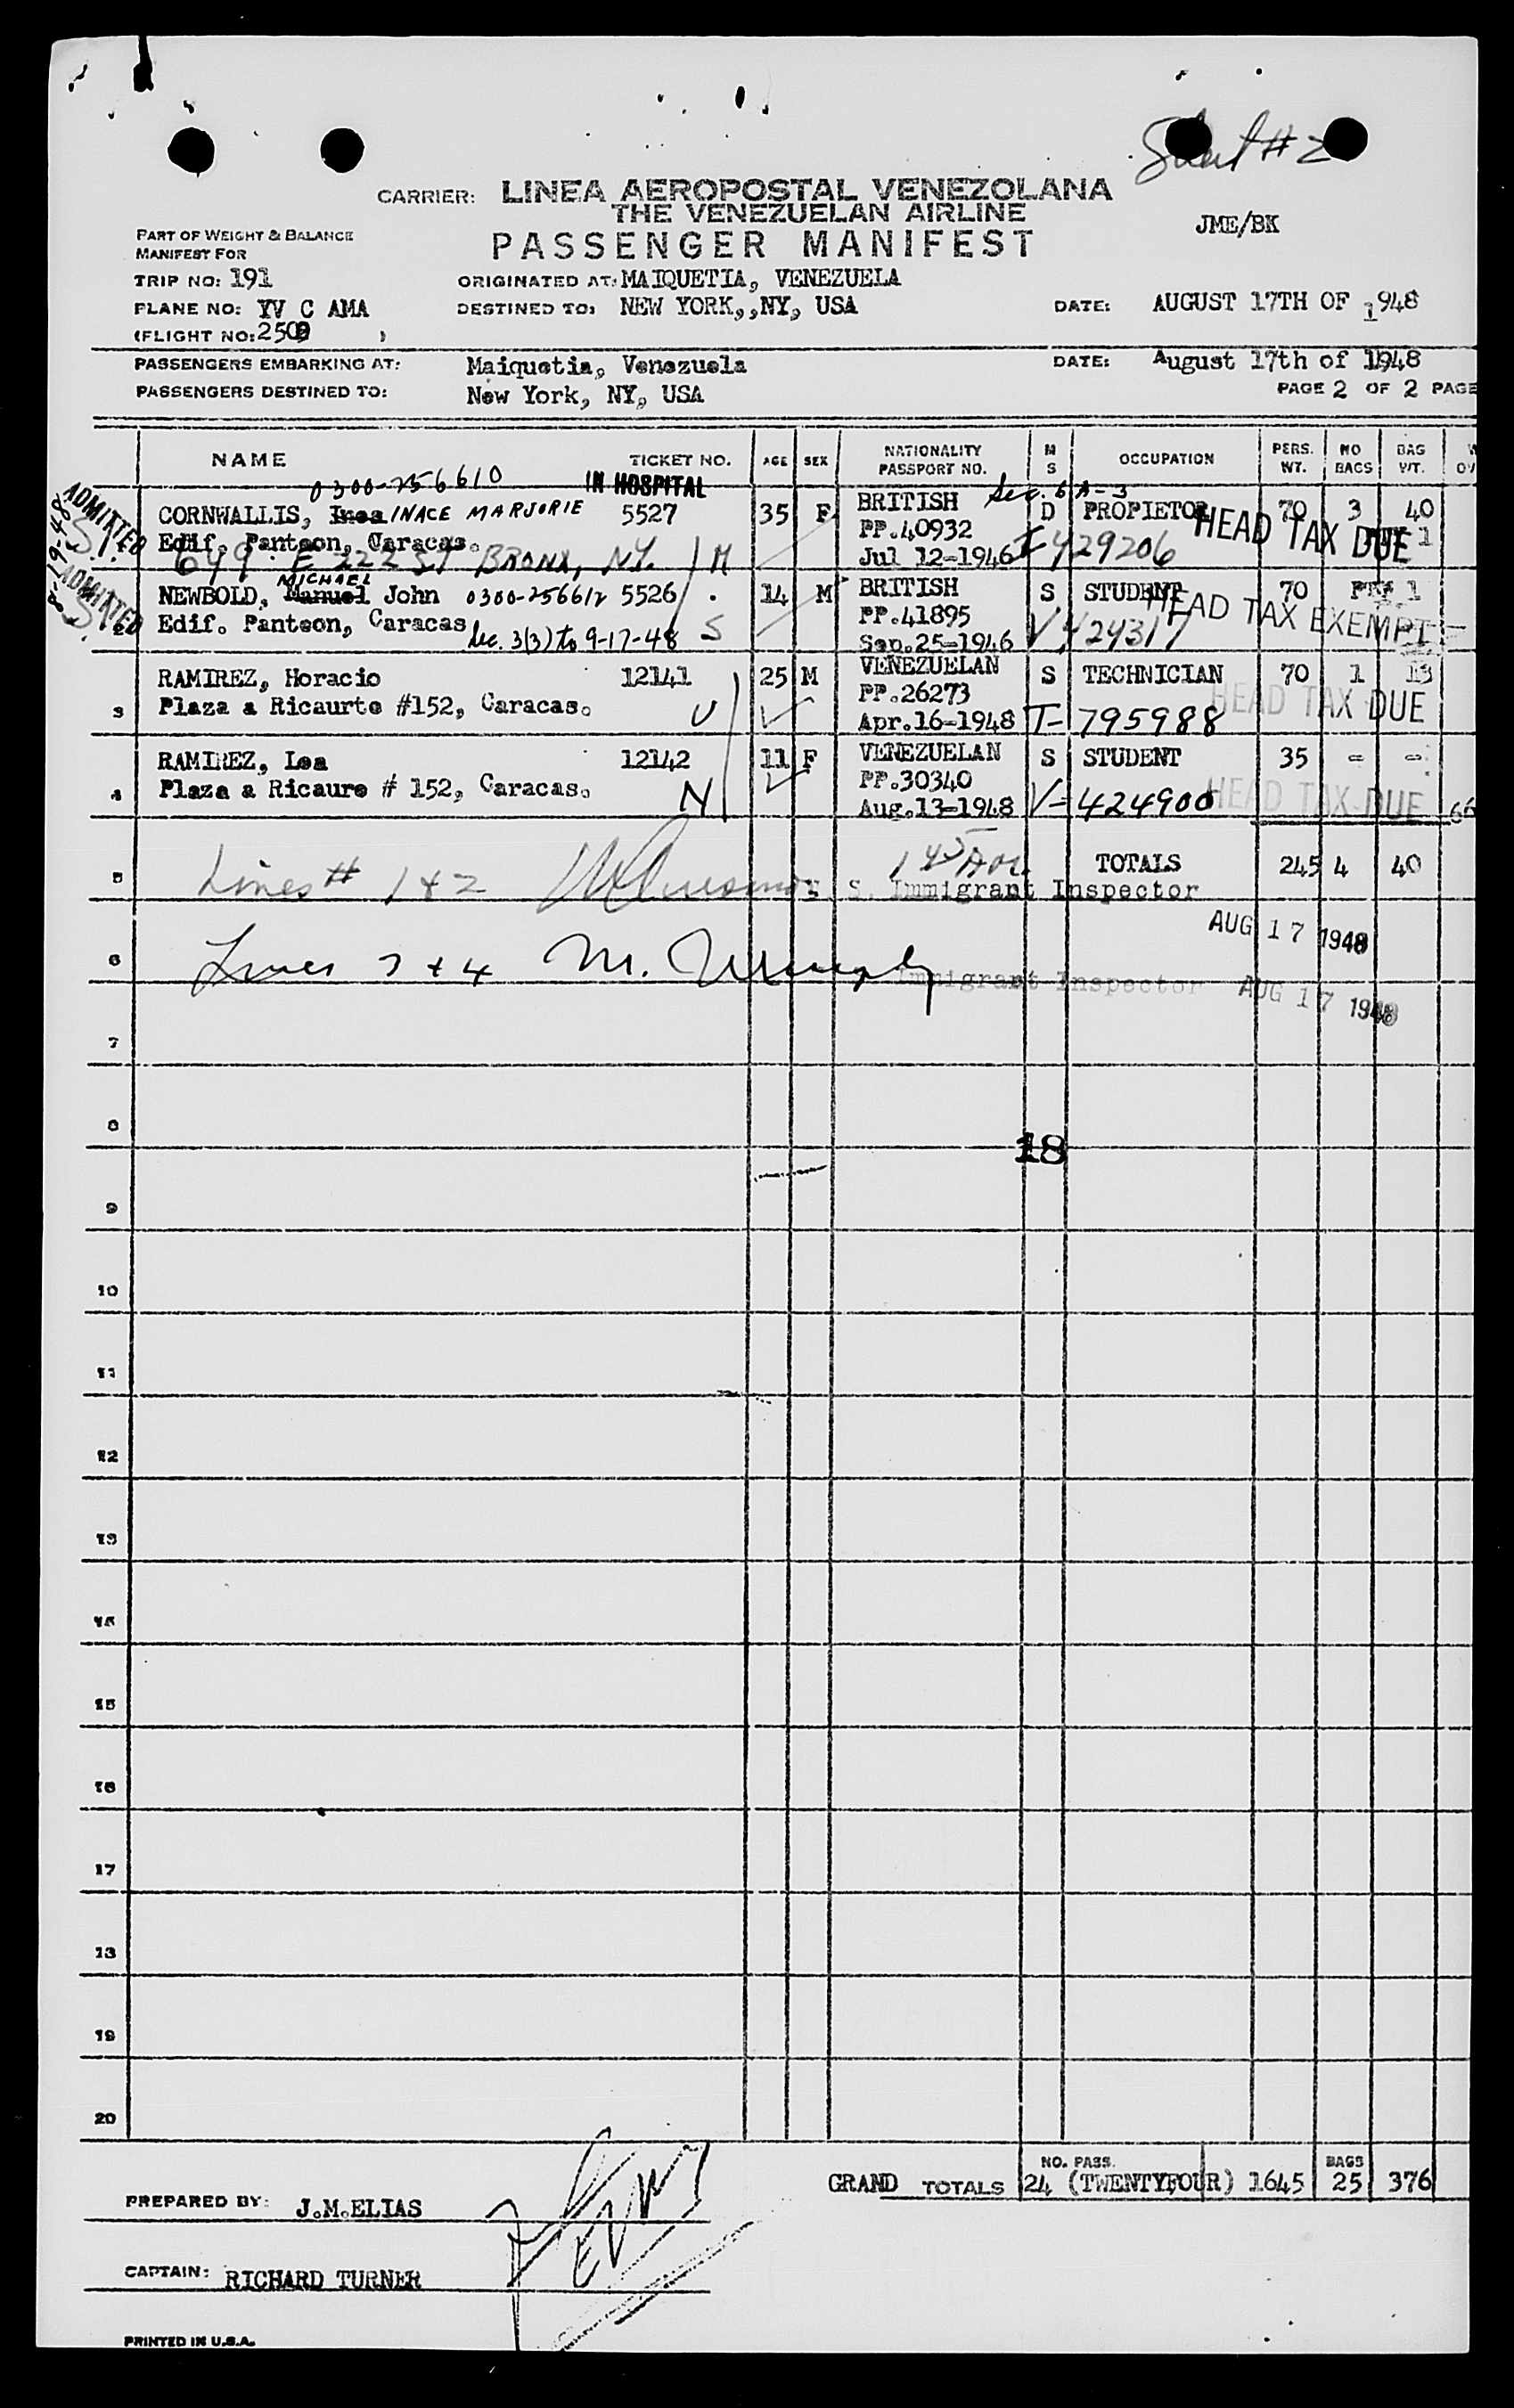 Sheet # 2
CARRIER: LINEA AEROPOSTAL VENEZOLANA
THE VENEZUELAN AIRLINE
JME/BK
PART OF WEIGHT & BALANCE
PASSENGER MANIFEST
MANIFEST FOR
TRIP NO: 191
ORIGINATED AT: MAIQUETIA, VENEZUELA
PLANE NO: YV C AMA
DESTINED TO: NEW YORK,,NY, USA
DATE: AUGUST 17TH OF 1948
(FLIGHT NO: 2509 )
PASSENGERS EMBARKING AT: Maiquetia, Venezuela
DATE: August 17th of 1948
PASSENGERS DESTINED TO: New York, NY, USA
PAGE 2 OF 2 PAGE
NAME TICKET NO. AGE SEX NATIONALITY PASSPORT NO. M S OCCUPATION PERS. WT. NO BAGS BAG WT.
0300-256610 IN HOSPITAL
Sec. 6 A-3
ADMITTED
S.I.
8-19-48
CORNWALLIS, Inea INACE MARJORIE 5527 35 F BRITISH D PROPIETOR 70 3 40
Edif. Panteon, Caracas. PP.40932 HEAD TAX DUE 1
649 E 222 ST BRONX, N.Y. M Jul 12-1946 I-429206
ADMITTED
S.I.
MICHAEL
NEWBOLD, Manuel John 0300-256612 5526 14 M BRITISH S STUDENT 70 1
2 Edif. Panteon, Caracas PP.41895 HEAD TAX EXEMPT
Sec. 3(3) to 9-17-48 S Sep.25-1946 V 424317
RAMIREZ, Horacio 12141 25 M VENEZUELAN S TECHNICIAN 70 1 13
3 Plaza a Ricaurte #152, Caracas. U PP.26273 HEAD TAX DUE
Apr.16-1948 T-795988
RAMIREZ, Lea 12142 11 F VENEZUELAN S STUDENT 35 - -
4 Plaza a Ricaure # 152, Caracas. N PP.30340 HEAD TAX DUE
Aug.13-1948 V-424900 66
5 Lines # 1 & 2 TOTALS 245 4 40
S. Immigrant Inspector
AUG 17 1948
6 Lines 3 + 4 M. Murphy
Immigrant Inspector AUG 17 1948
7
8
18
9
10
11
12
13
14
15
16
17
18
19
20
GRAND TOTALS NO. PASS. 24 (TWENTYFOUR) 1645 BAGS 25 376
PREPARED BY: J.M.ELIAS
CAPTAIN: RICHARD TURNER
PRINTED IN U.S.A.